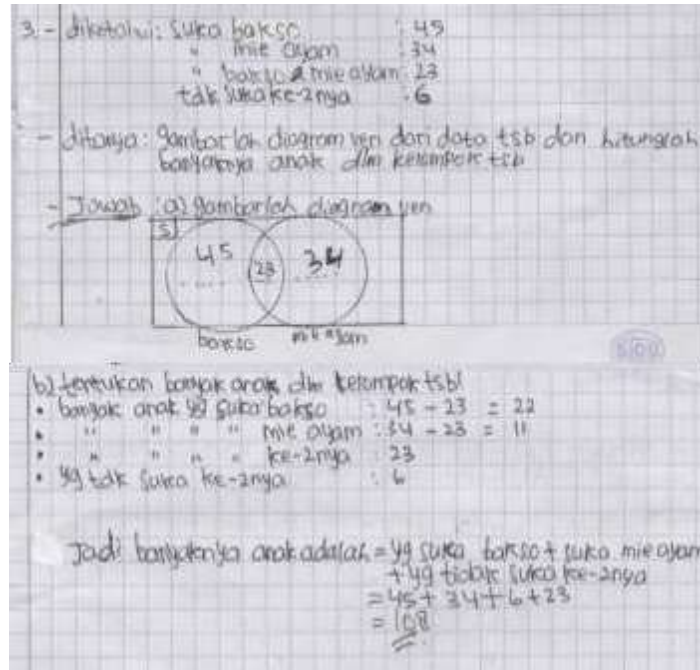 3. - diketahui : Suka bakso : 45
" mie ayam : 34
" bakso & mie ayam : 23
tdk suka ke-2nya : 6
- ditanya : gambarlah diagram ven dari data tsb dan hitunglah
banyaknya anak dlm kelompok tsb
- Jawab : a) gambarlah diagram ven
S
45 23 34
bakso mie ayam
b) tentukan banyak anak dlm kelompok tsb!
• banyak anak yg suka bakso : 45 - 23 = 22
• " " " " mie ayam : 34 - 23 = 11
• " " " " ke-2nya : 23
• yg tdk suka ke-2nya : 6
Jadi banyaknya anak adalah = yg suka bakso + suka mie ayam
+ yg tidak suka ke-2nya
= 45 + 34 + 6 + 23
= 108